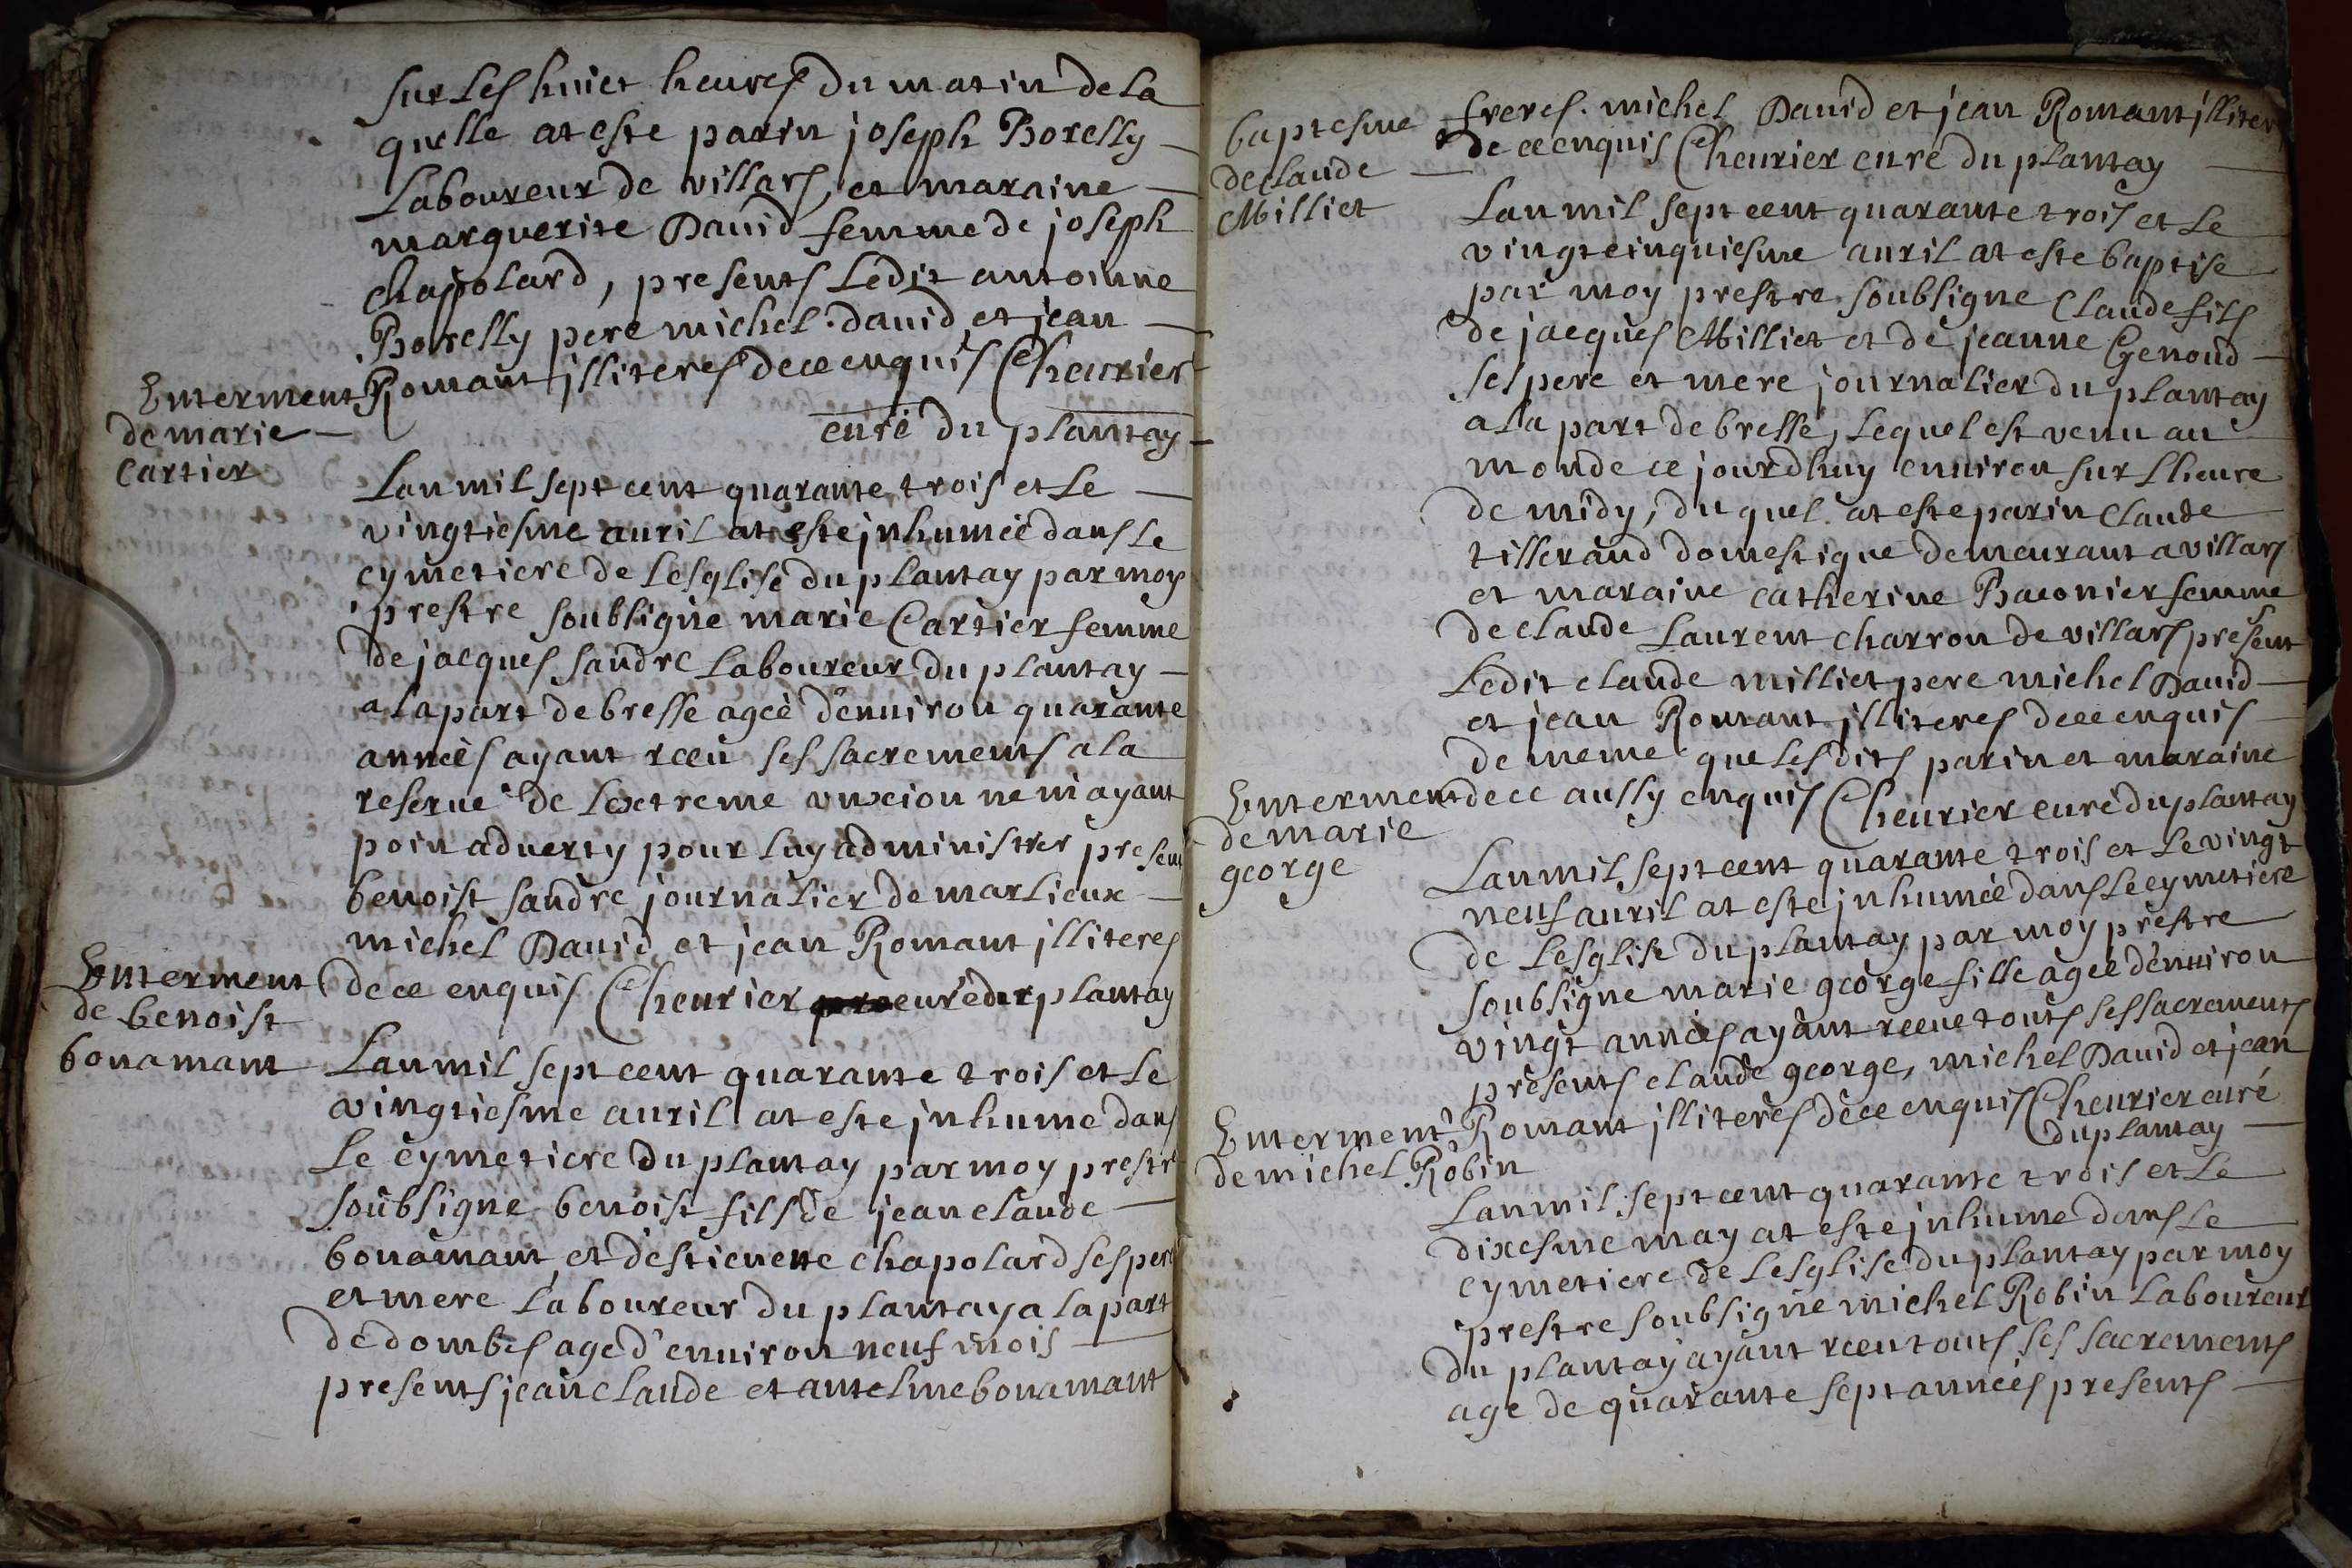 sur les huict heures du matin de la
quelle at este parin joseph Borelly
Laboureur de villars, et maraine
marguerite David femme de joseph
chapolard, presents Ledit antoinne
Borelly pere michel david et jean
Romant jlliteres de ce enquis Cheurier
curé du plantay
Enterment
de marie
Cartier
Lan mil sept cent quarante trois et Le
vingtiesme auril at este jnhumée dans Le
cymetiere de Lesglise du plantay par moy
prestre soubsigne marie Cartier femme
de jacques sandre Laboureur du plantay
a la part de bresse agée denuiron quarante
années ayant rceu ses sacrements a la
reserue de Lextreme vnxcion ne mayant
poin aduerty pour luy administrer present
benoist sandre journalier de marlieux
michel David et jean Romant jlliteres
de ce enquis Cheurier curé du plantay
Enterment
de benoist
bonamant
Lan mil sept cent quarante trois et Le
vingtiesme auril at este jnhume dans
Le cymetiere du plantay par moy prestre
soubsigne benoist fils de jean claude
bonamant et destienette chapolard ses pere
et mere Laboureur du plantay a la part
de dombes age d'enuiron neuf mois
presents jean claude et antelme bonamant
freres. michel David et jean Romant jlliteres
de ce enquis Cheurier curé du plantay
baptesme
de claude
Milliet
Lan mil sept cent quarante trois et Le
vingt cinquiesme auril at este baptise
par moy prestre soubsigne Claude fils
de jacques Milliet et de jeanne Genoud
ses pere et mere journalier du plantay
a la part de bresse, Lequel est venu au
monde ce jourdhuy enuiron sur Lheure
de midy, du quel at este parin Claude
tillerand domestique demeurant a villars
et maraine catherine Baconier femme
de claude Laurent charron de villars present
Ledit claude milliet pere michel David
et jean Romant jlliteres de ce enquis
de meme que Les dits parin et maraine
de ce aussy enquis Cheurier curé du plantay
Enterment
de marie
george
Lan mil sept cent quarante trois et Le vingt
neuf auril at este jnhumée dans Le cymetiere
de Lesglise du plantay par moy prestre
soubsigne marie george fille agee denuiron
vingt années ayant rceue touts ses sacrements
presents claude george, michel David et jean
Romant jlliteres de ce enquis Cheurier curé
du plantay
Enterment
de michel Robin
Lan mil sept cent quarante trois et Le
dixesme may at este jnhume dans Le
cymetiere de Lesglise du plantay par moy
prestre soubsigne michel Robin Laboureur
du plantay ayant rceu touts ses sacrements
age de quarante sept années presents